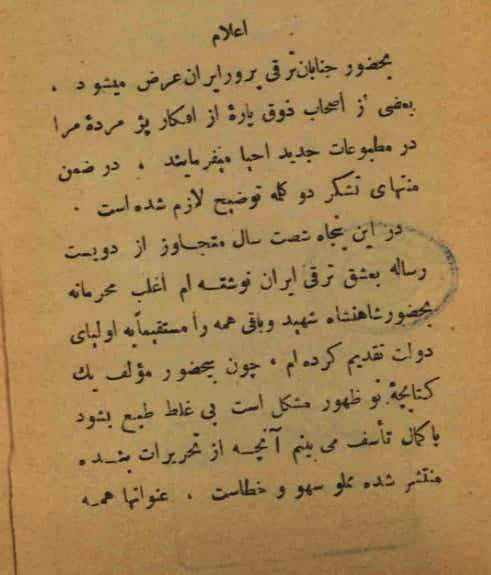 اعلام
بحضور جنابان ترقی پرور ایران عرض میشود .
بعضی از اصحاب ذوق پارۀ از افکار پژمردۀ مرا
در مطبوعات جدید احیا میفرمایند . در ضمن
منتهای تشکر دو کلمه توضیح لازم شده است .
در این پنجاه شصت سال متجاوز از دویست
رساله بعشق ترقی ایران نوشته ام اغلب محرمانه
بحضور شاهنشاه شهید وباقی همه را مستقیماً به اولیای
دولت تقدیم کرده ام ، چون بیحضور مؤلف یك
کتابچۀ نو ظهور مشکل است بی غلط طبع بشود
باکمال تأسف می بینم آنچه از تحریرات بنده
منتشر شده مملو سهو و خطاست . عنوانها همه